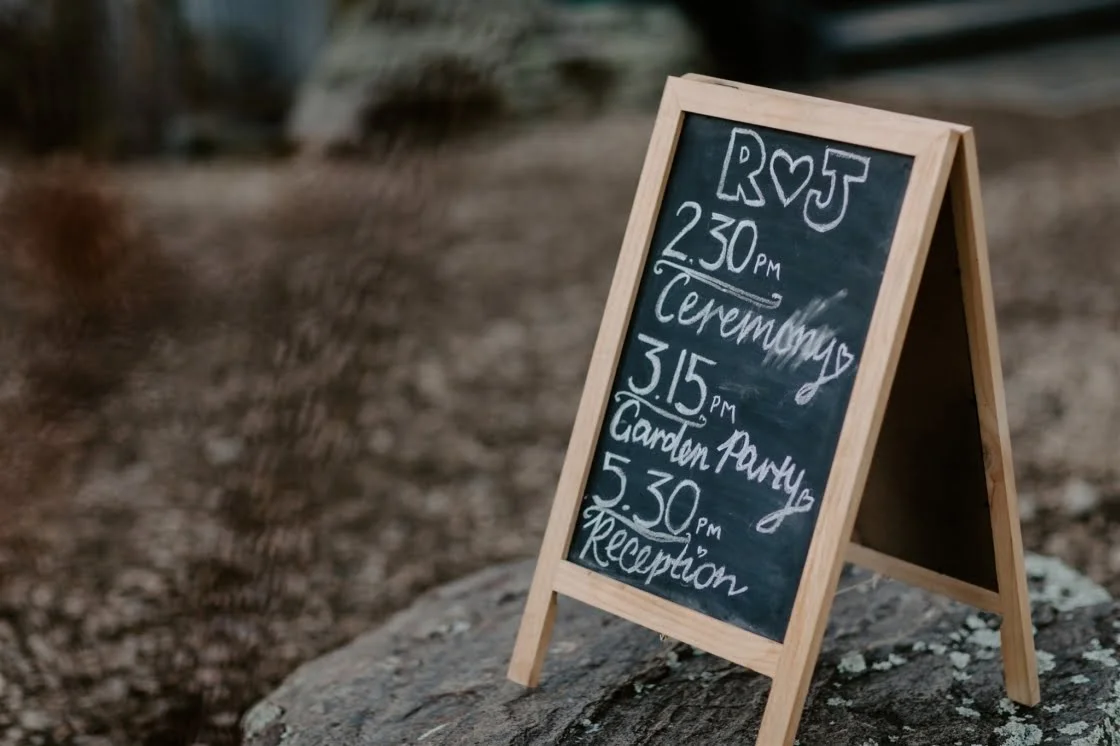 R♡J
2.30PM
Ceremony
3.15PM
Garden Party
5.30PM
Reception